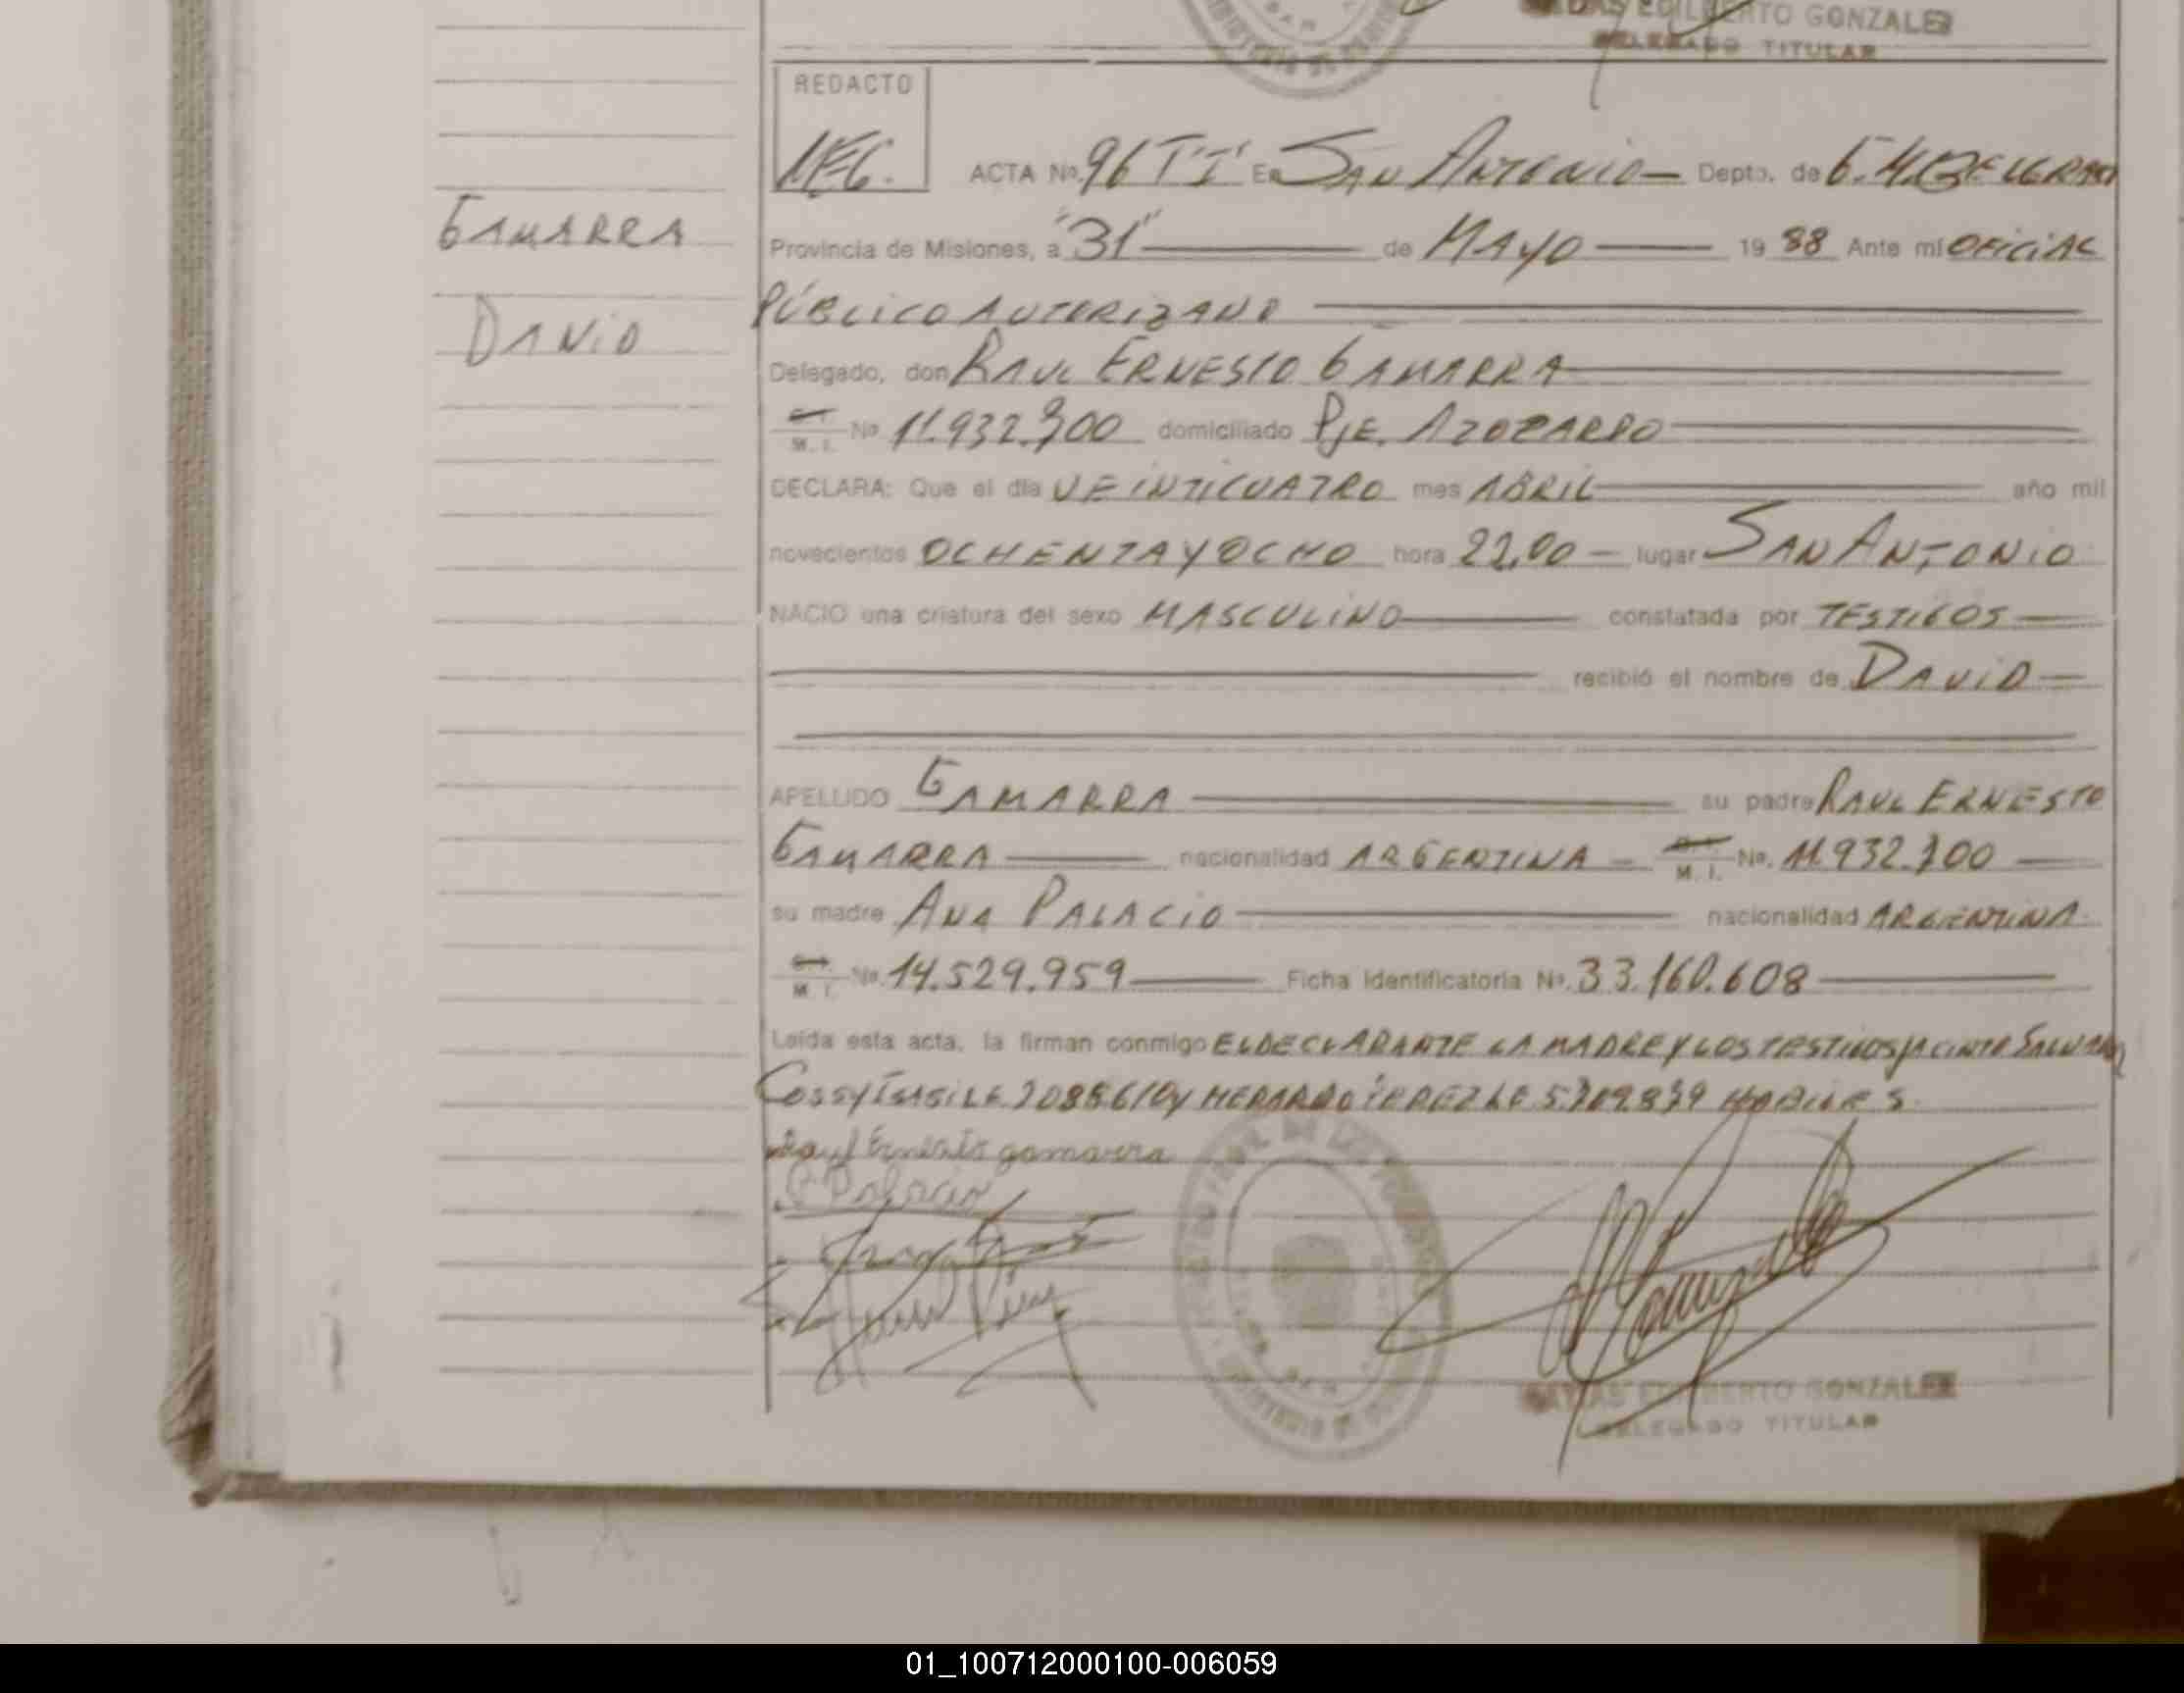 EDILBERTO GONZALEZ
DELEGADO TITULAR
REDACTO
ACTA Nº 96 TºIº En SAN ANTONIO — Depto. de G.M. BELGRANO
GAMARRA
Provincia de Misiones, a "31" de MAYO 19 88 Ante mí OFICIAL
PÚBLICO AUTORIZAND
DAVID
Delegado, don RAUL ERNESTO GAMARRA
M. I. Nº 11.932.700 domiciliado PJE. AZOPARDO
DECLARA: Que el día VEINTICUATRO mes ABRIL año mil
novecientos OCHENTA Y OCHO hora 22,00 — lugar SAN ANTONIO
NACIO una criatura del sexo MASCULINO constatada por TESTIGOS —
recibió el nombre de DAVID —
APELLIDO GAMARRA su padre RAUL ERNESTO
GAMARRA nacionalidad ARGENTINA — M. I. Nº. 11.932.700
su madre ANA PALACIO nacionalidad ARGENTINA
M. I. Nº. 14.529.959 Ficha Identificatoria Nº. 33.160.608
Leída esta acta, la firman conmigo EL DECLARANTE LA MADRE Y LOS TESTIGOS JACINTO
PEREZ LE HABILES.
Raul Ernesto gamarra
Palacio
EDILBERTO GONZALEZ
DELEGADO TITULAR
01_100712000100-006059